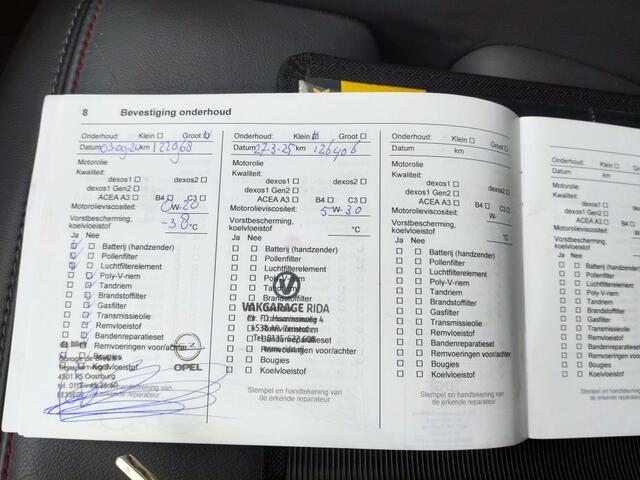 8 Bevestiging onderhoud
Onderhoud: Klein Groot
Datum 03-09-24 km 122968
Motorolie
Kwaliteit:
dexos1 dexos2
dexos1 Gen2
ACEA A3 B4 C3
Motorolieviscositeit: 0 W- 20
Vorstbescherming, koelvloeistof -38 °C
Ja Nee
Batterij (handzender)
Pollenfilter
Luchtfilterelement
Poly-V-riem
Tandriem
Brandstoffilter
Gasfilter
Transmissieolie
Remvloeistof
Bandenreparatieset
Remvoeringen voor/achter
Bougies
Koelvloeistof
4501 PS Oostburg
OPEL
Stempel en handtekening van
de erkende reparateur
Onderhoud: Klein Groot
Datum 27-3-25 km 126406
Motorolie
Kwaliteit:
dexos1 dexos2
dexos1 Gen2
ACEA A3 B4 C3
Motorolieviscositeit: 5 W- 30
Vorstbescherming,
koelvloeistof °C
Ja Nee
Batterij (handzender)
Pollenfilter
Luchtfilterelement
Poly-V-riem
Tandriem
Brandstoffilter
Gasfilter
VAKGARAGE RIDA
Transmissieolie
Remvloeistof
Bandenreparatieset
Remvoeringen voor/achter
Bougies
Koelvloeistof
Stempel en handtekening van
de erkende reparateur
Onderhoud: Klein Groot
Datum km
Motorolie
Kwaliteit:
dexos1 dexos2
dexos1 Gen2
ACEA A3 B4 C3
Motorolieviscositeit: W-
Vorstbescherming,
koelvloeistof °C
Ja Nee
Batterij (handzender)
Pollenfilter
Luchtfilterelement
Poly-V-riem
Tandriem
Brandstoffilter
Gasfilter
Transmissieolie
Remvloeistof
Bandenreparatieset
Remvoeringen voor/achter
Bougies
Koelvloeistof
Stempel en handtekening van
de erkende reparateur
Onderhoud:
Datum
Motorolie
Kwaliteit:
Motorolieviscositeit:
Vorstbescherming,
koelvloeistof
Ja Nee